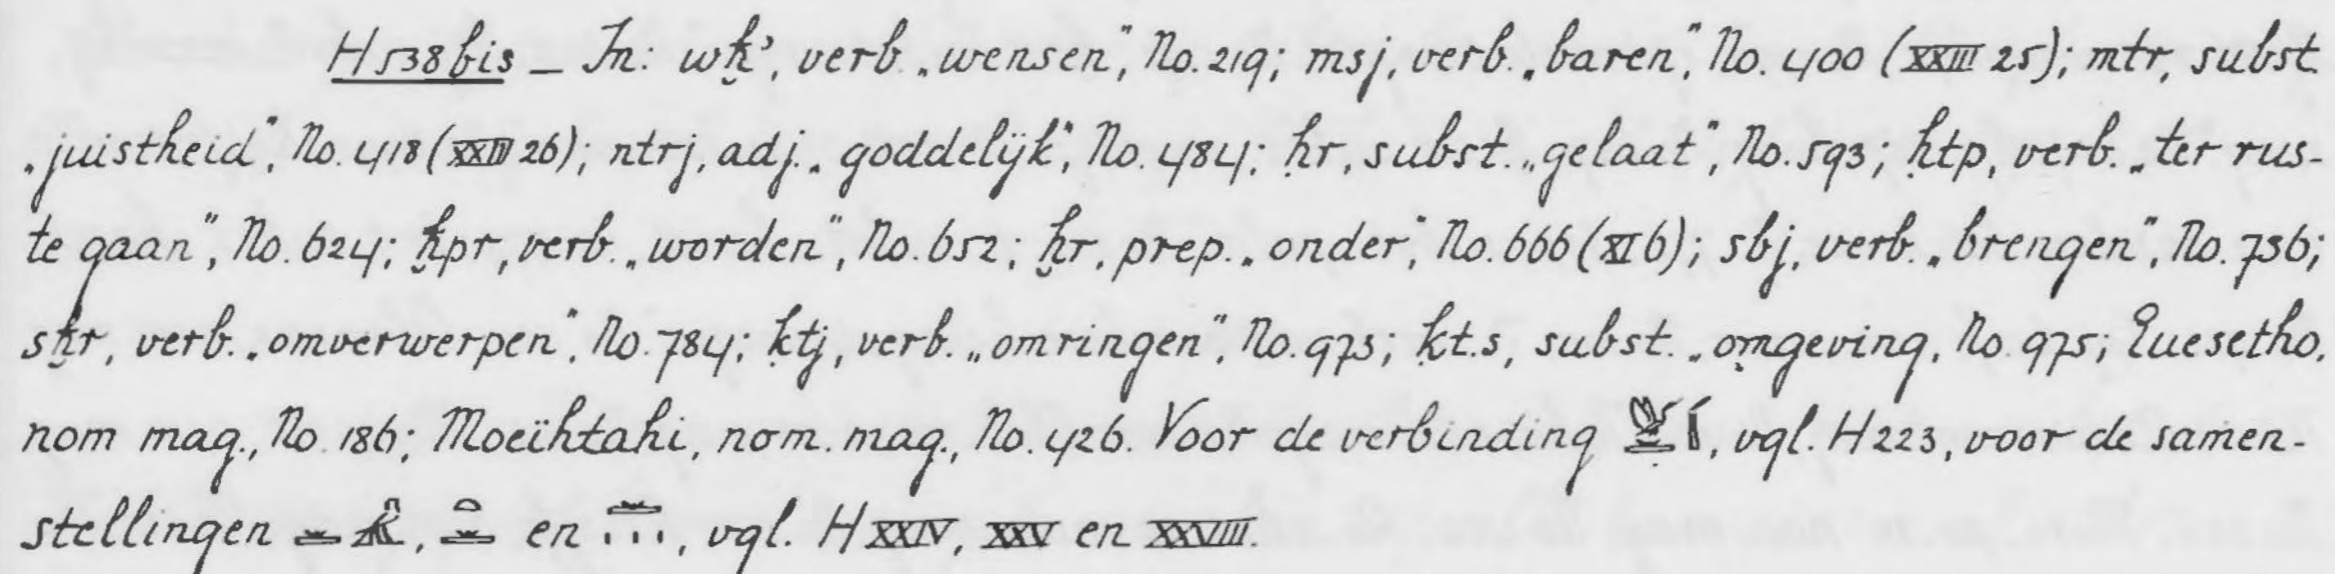 H538bis – In: wẖꜣ, verb „wensen”, No. 219; msj, verb. „baren”, No. 400 (XXIII 25); mtr, subst.
„juistheid”, No. 418 (XXIII 26); ntrj, adj. „goddelijk”, No. 484; ḥr, subst. „gelaat”, No. 593; ḥtp, verb. „ter rus-
te gaan”, No. 624; ḫpr, verb. „worden”, No. 652; ẖr, prep. „onder”, No. 666 (XI 6); sbj, verb. „brengen”, No. 736;
sḫr, verb. „omverwerpen”, No. 784; ḳtj, verb. „omringen”, No. 973; ḳt.s, subst. „omgeving, No. 975; Euesetho,
nom mag., No. 186; Moeïhtahi, nom. mag., No. 426. Voor de verbinding , vgl. H223, voor de samen-
stellingen , en , vgl. H XXIV, XXV en XXVIII.